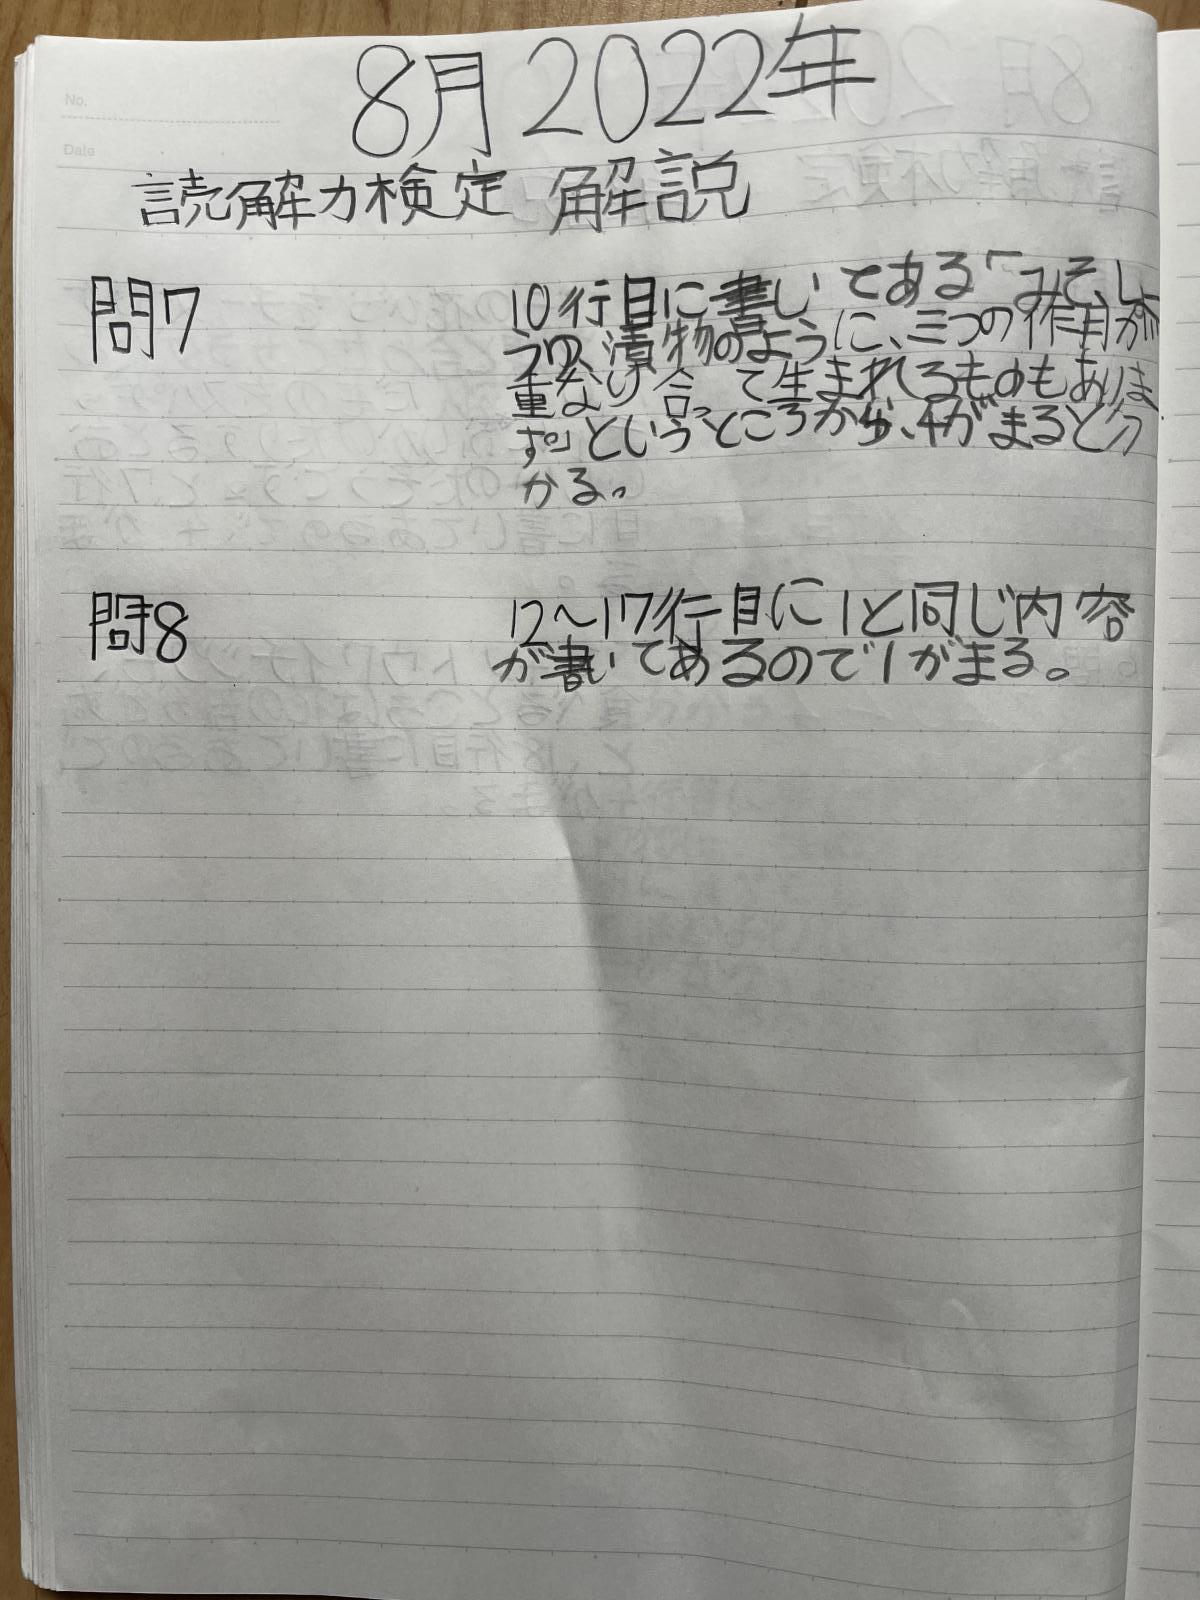 No.
Date
8月 2022年
読解力検定 解説
問7
10行目に書いてある「みそ、しょ
うゆ、漬物のように、三つの作用が
重なり合って生まれてるものもありま
す。」というところから、4がまると分
かる。
問8
12〜17行目に1と同じ内容
が書いてあるので1がまる。